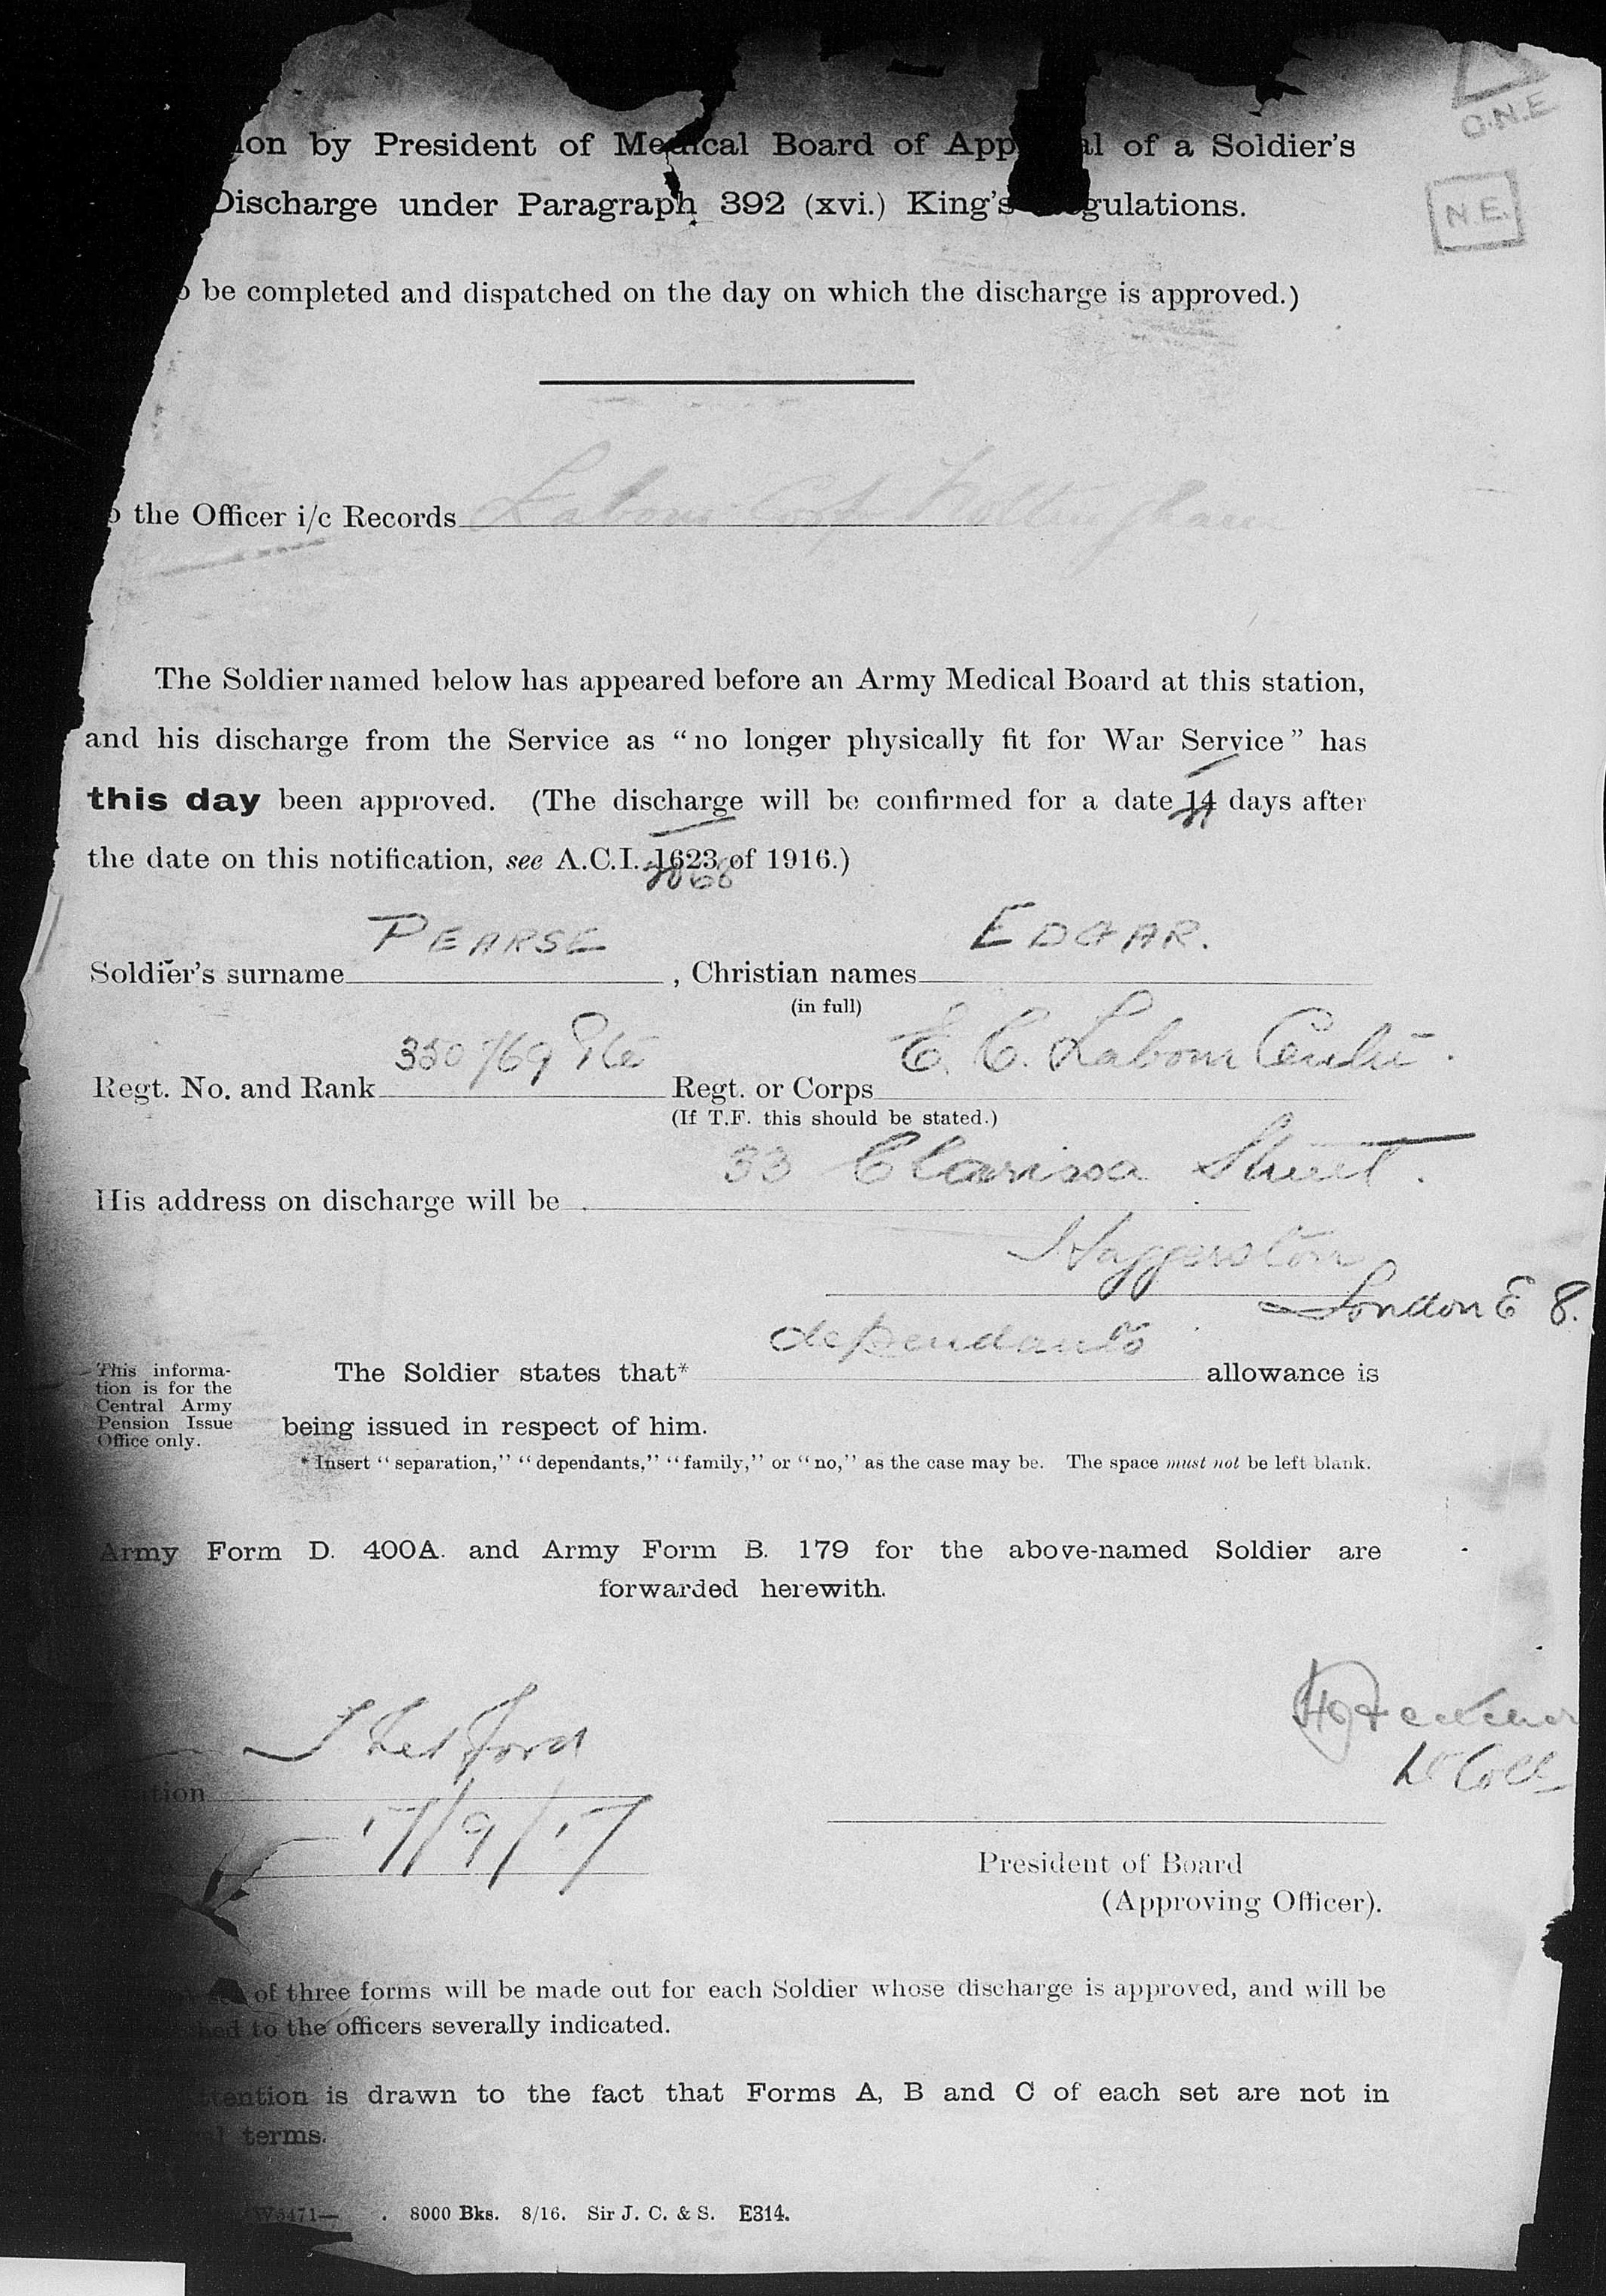 O.N.E
ion by President of Medical Board of App al of a Soldier's
Discharge under Paragraph 392 (xvi.) King's gulations.
N.E.
o be completed and dispatched on the day on which the discharge is approved.)
o the Officer i/c Records Labour Nottingham
The Soldier named below has appeared before an Army Medical Board at this station,
and his discharge from the Service as “no longer physically fit for War Service” has
this day been approved. (The discharge will be confirmed for a date 14 days after
21
the date on this notification, see A.C.I. 1623 of 1916.)
2068
PEARSE EDGAR.
Soldier's surname , Christian names
(in full)
350769 Pte E. C. Labour Centre.
Regt. No. and Rank Regt. or Corps
(If T.F. this should be stated.)
33 Clarissa Street.
His address on discharge will be
Haggerston
London E 8.
dependants
The Soldier states that* allowance is
being issued in respect of him.
This informa-
tion is for the
Central Army
Pension Issue
Office only.
*Insert “separation,” “dependants,” “family,” or “no,” as the case may be. The space must not be left blank.
Army Form D. 400A. and Army Form B. 179 for the above-named Soldier are
forwarded herewith.
Thetford
Lt Coll
ation
17/9/17
President of Board
(Approving Officer).
of three forms will be made out for each Soldier whose discharge is approved, and will be
hed to the officers severally indicated.
ttention is drawn to the fact that Forms A, B and C of each set are not in
l terms.
W3471— . 8000 Bks. 8/16. Sir J. C. & S. E314.